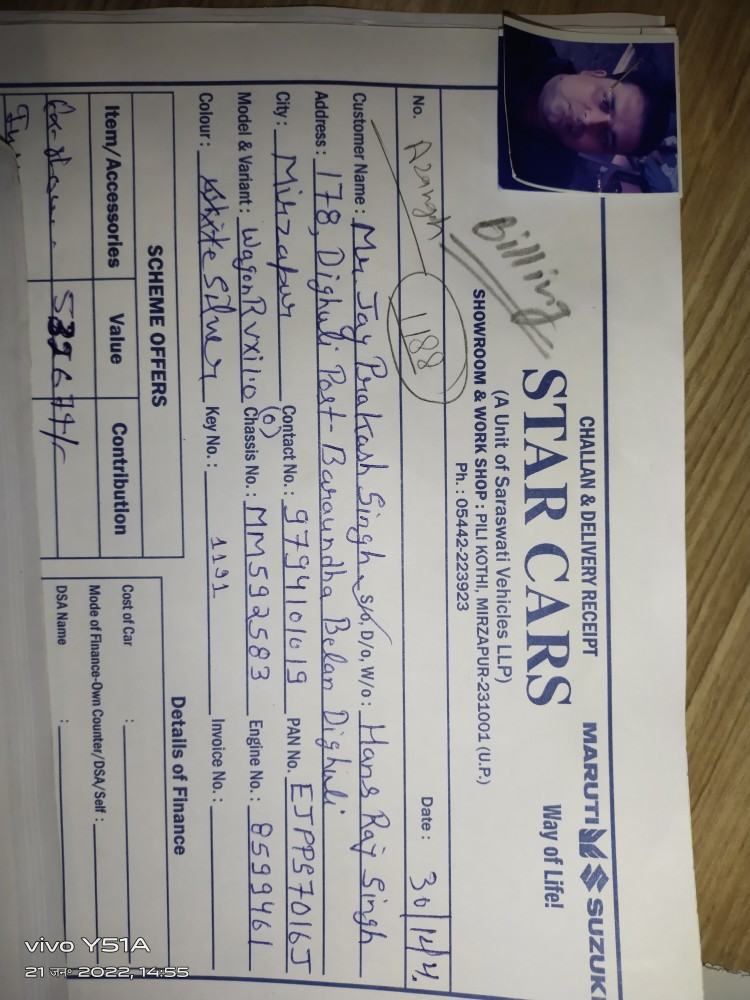 CHALLAN & DELIVERY RECEIPT
MARUTI SUZUKI
Way of Life!
Billing
STAR CARS
(A Unit of Saraswati Vehicles LLP)
SHOWROOM & WORK SHOP : PILI KOTHI, MIRZAPUR-231001 (U.P.)
Ph. : 05442-223923
No. 1188 Date :
Customer Name : Mr Jay Prakash Singh S/o, D/o, W/o : Hans Raj Singh
Address : 178, Dighuli Post- Baraundha Belan Dighuli
City : Mirzapur Contact No. : 9794101019 PAN No. EJPPS7016J
Model & Variant : WagonR vxi 1.0 (O) Chassis No. : MM592583 Engine No. : 8599461
Colour : Silver Key No. : 1191 Invoice No. :
SCHEME OFFERS
Item/Accessories Value Contribution
Details of Finance
Cost of Car :
Mode of Finance-Own Counter/DSA/Self :
DSA Name :
vivo Y51A
21 जन॰ 2022, 14:55